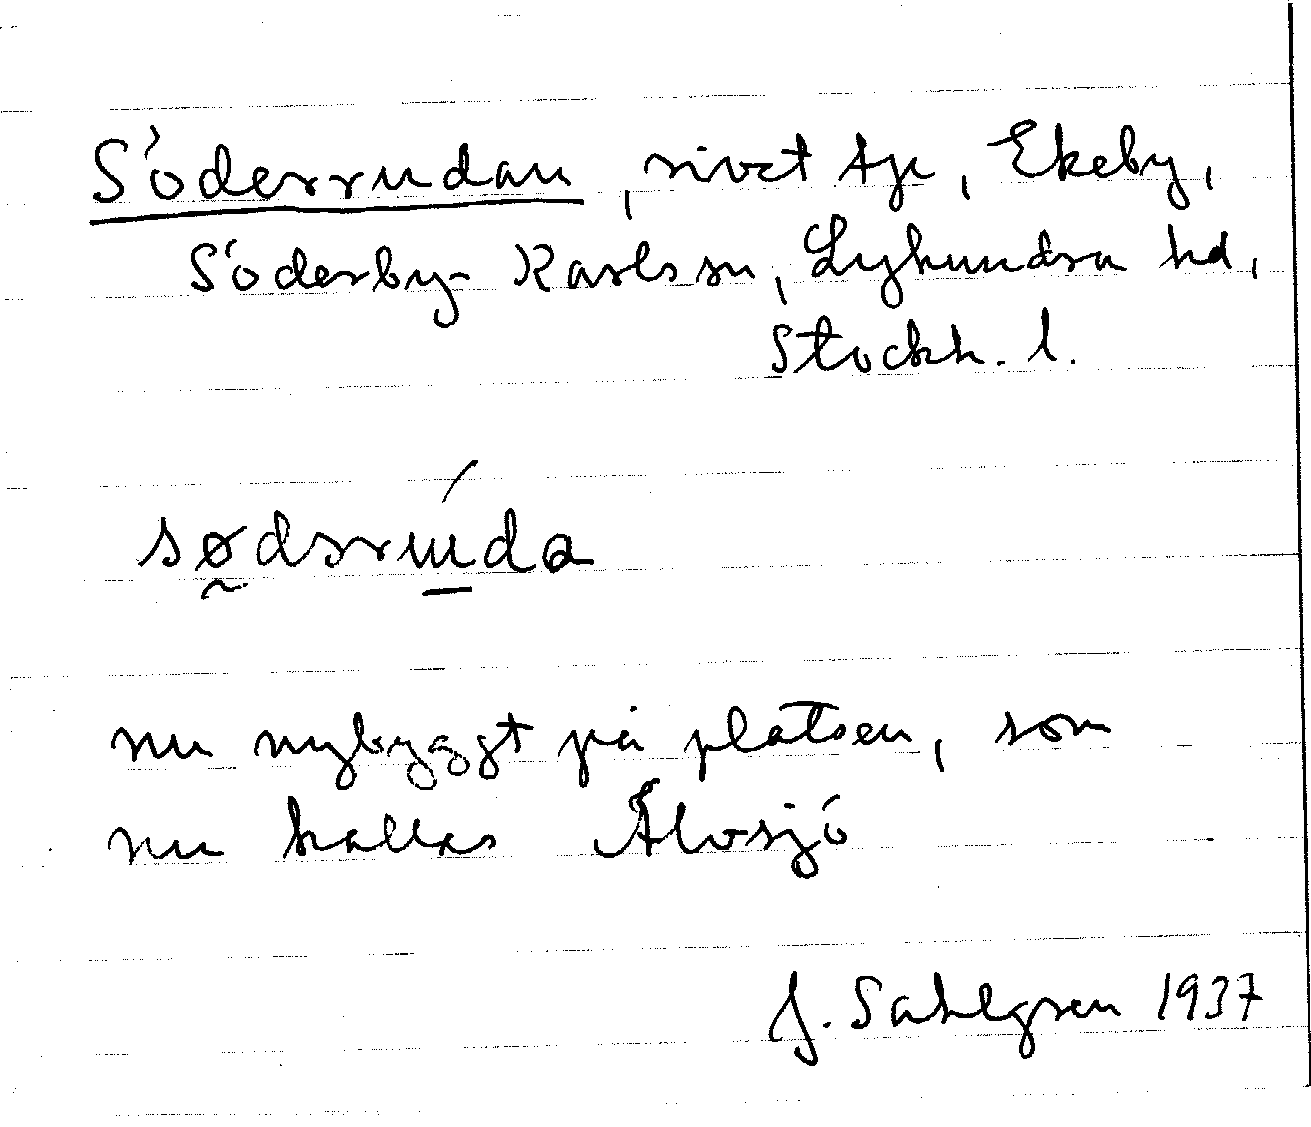 Söderrudan, rivet tp, Ekeby,
Söderby-Karlsn, Lyhundra hd,
Stockh. l.
sødsrúda
nu nybyggt på platsen, som
nu kallas Älvsjö
J. Sahlgren 1937